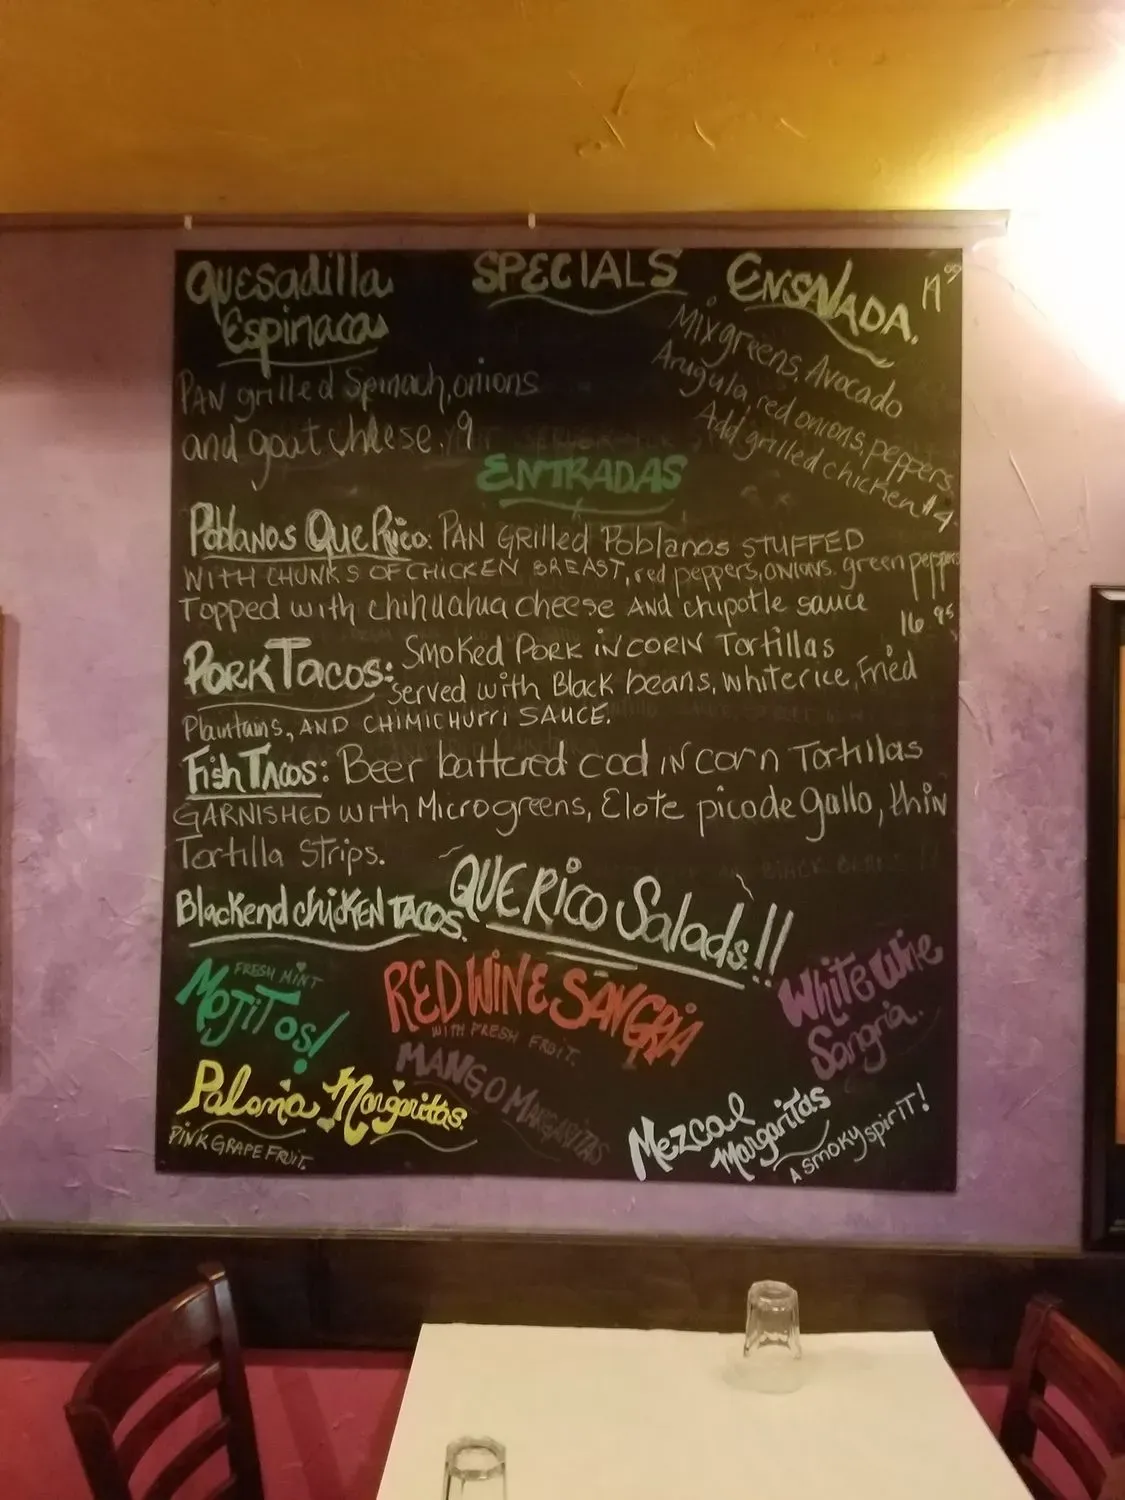 SPECIALS
Quesadilla
Espinacas
PAN grilled Spinach, onions
and goat cheese. 9
ENSALADA.
Mix greens, Avocado
Arugula, red onions, peppers,
Add grilled chicken $4.
ENTRADAS
Poblanos Que Rico: PAN GRilled Poblanos STUFFED
WITH CHUNKS OF CHICKEN BREAST, red peppers, onions. green peppers
Topped with chihuahua cheese AND chipotle sauce
16.95
PORK TACOS: Smoked PORK iN CORN Tortillas
served with Black beans, white rice, Fried
Plantains, AND CHIMICHURRI SAUCE.
Fish TACOS: Beer battered cod iN corn Tortillas
GARNISHED with Microgreens, Elote pico de gallo, thin
Tortilla Strips.
Blackend chicKEN TACOS.
QUE Rico Salads!!
FRESH MINT
MOJITOS!
RED WINE SANGRIA
WITH FRESH FRUIT.
White Wine
Sangria.
Paloma Margaritas
PINK GRAPE FRUIT.
MANGO MARGARITAS
Mezcal
Margaritas
A smoky spiriT!